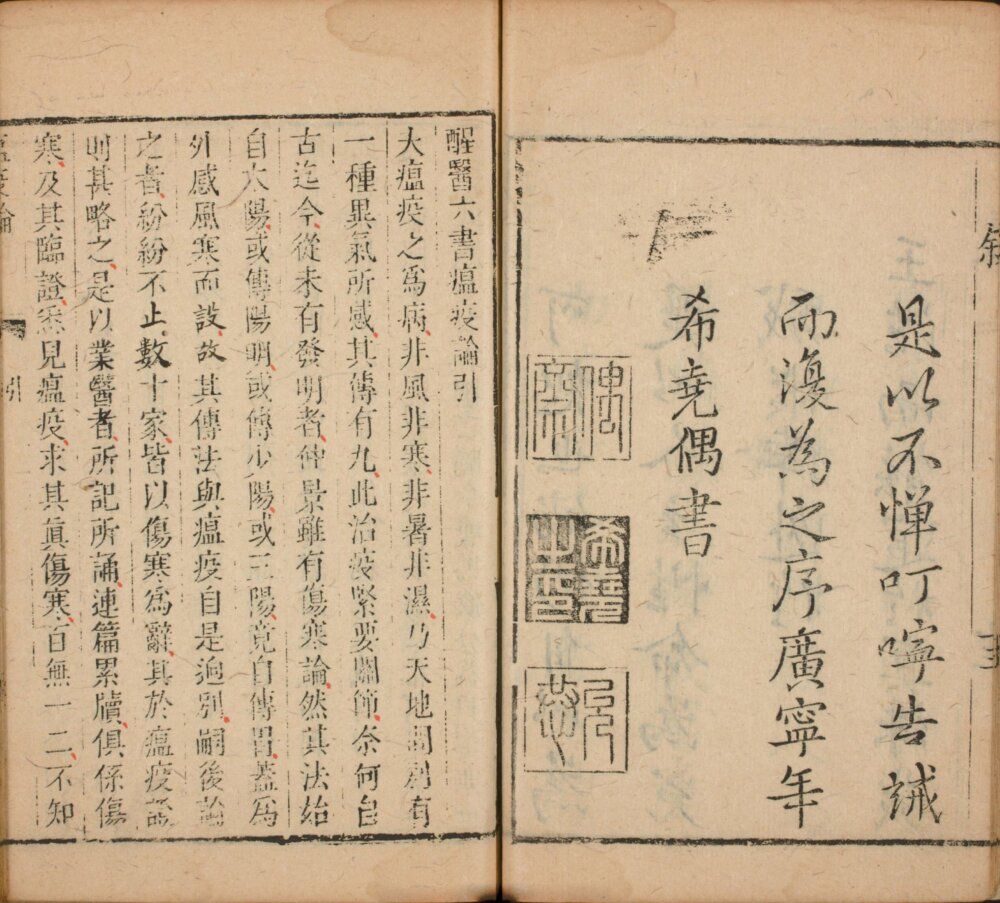 敘
是以不憚叮嚀告誡
而復為之序廣寧年
希堯偶書
醒醫六書瘟疫論引
大瘟疫之爲病非風非寒非暑非濕乃天地間別有
一種異氣所感其傳有九此治疫緊要關節奈何自
古迄今從未有發明者仲景雖有傷寒論然其法始
自太陽或傳陽明或傳少陽或三陽竟自傳胃蓋爲
外感風寒而設故其傳法與瘟疫自是迥別嗣後論
之者紛紛不止數十家皆以傷寒爲辭其於瘟疫證
則甚略之是以業醫者所記所誦連篇累牘俱係傷
寒及其臨證悉見瘟疫求其眞傷寒百無一二不知
瘟疫論 引